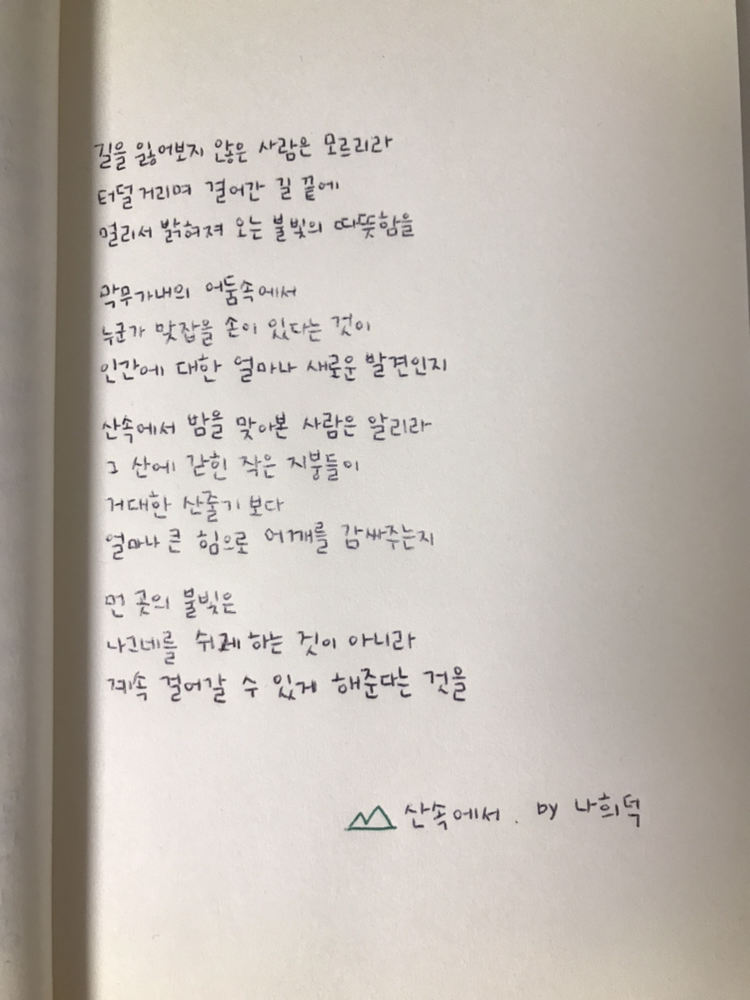 길을 잃어보지 않은 사람은 모르리라
터덜거리며 걸어간 길 끝에
멀리서 밝혀져 오는 불빛의 따뜻함을
막무가내의 어둠속에서
누군가 맞잡을 손이 있다는 것이
인간에 대한 얼마나 새로운 발견인지
산속에서 밤을 맞아본 사람은 알리라
그 산에 갇힌 작은 지붕들이
거대한 산줄기 보다
얼마나 큰 힘으로 어깨를 감싸주는지
먼 곳의 불빛은
나그네를 쉬게 하는 것이 아니라
계속 걸어갈 수 있게 해준다는 것을
산속에서. by 나희덕